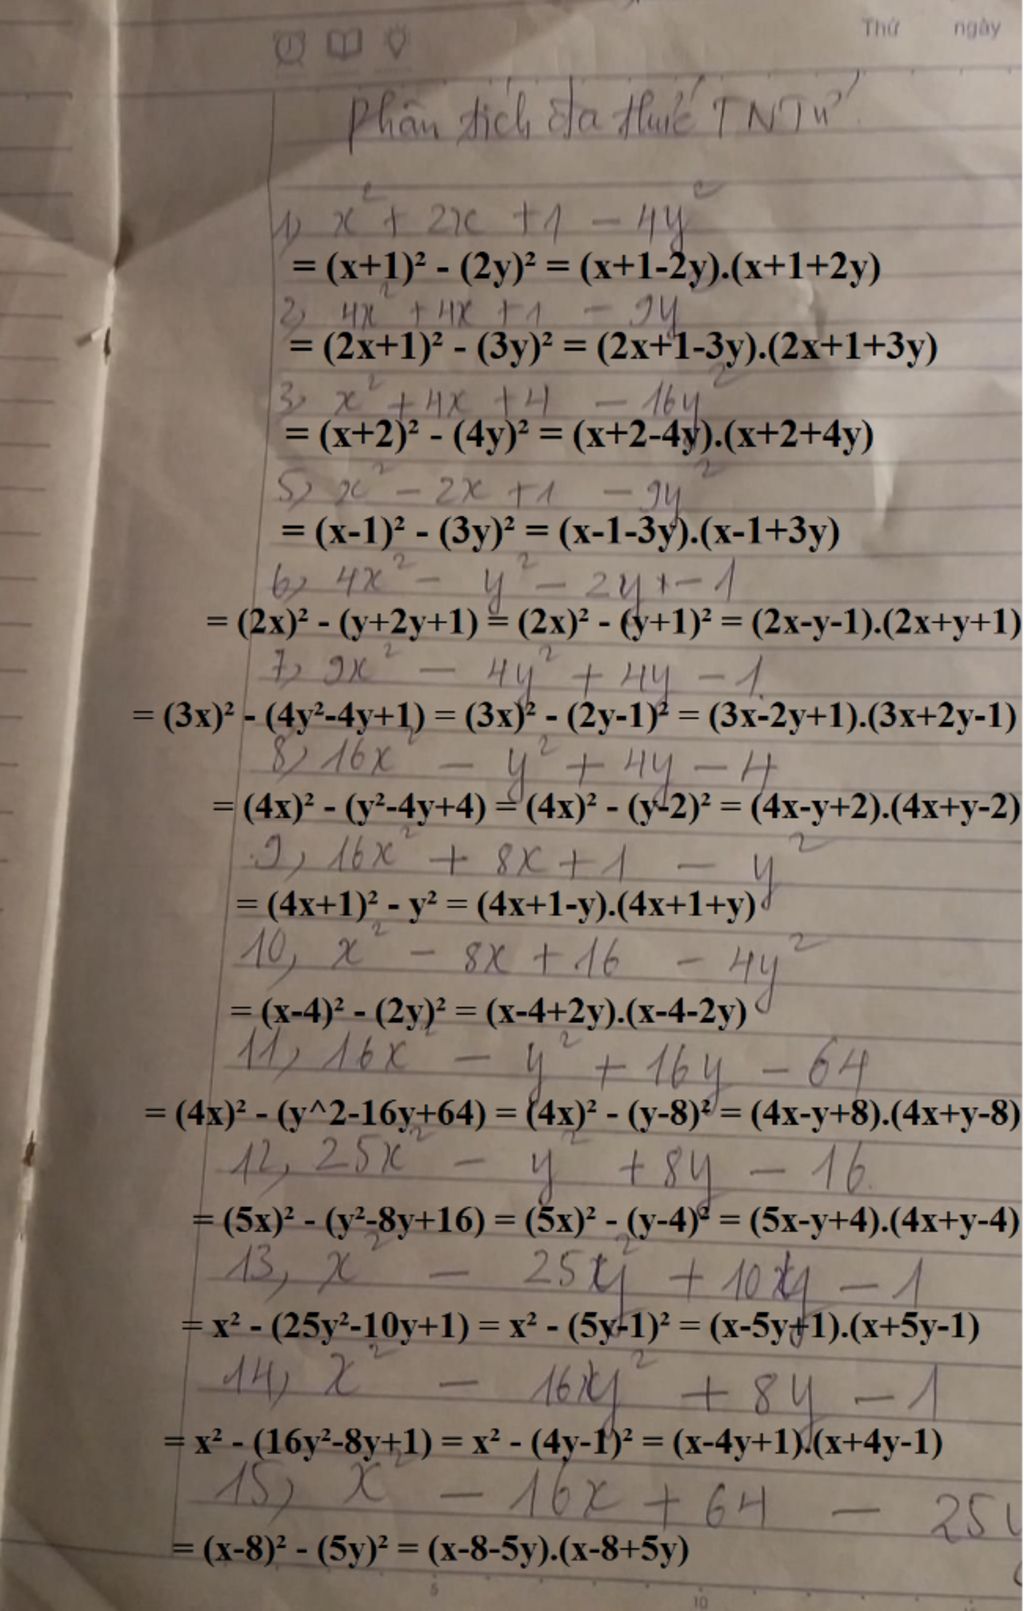 Thứ ngày
phân tích đa thức TNTử
1, x² + 2x + 1 - 4y²
= (x+1)² - (2y)² = (x+1-2y).(x+1+2y)
2, 4x² + 4x + 1 - 9y
= (2x+1)² - (3y)² = (2x+1-3y).(2x+1+3y)
3, x² + 4x + 4 - 16y²
= (x+2)² - (4y)² = (x+2-4y).(x+2+4y)
5, x² - 2x + 1 - 9y²
= (x-1)² - (3y)² = (x-1-3y).(x-1+3y)
6, 4x² - y² - 2y - 1
= (2x)² - (y+2y+1) = (2x)² - (y+1)² = (2x-y-1).(2x+y+1)
7, 9x² - 4y² + 4y - 1
= (3x)² - (4y²-4y+1) = (3x)² - (2y-1)² = (3x-2y+1).(3x+2y-1)
8, 16x² - y² + 4y - 4
= (4x)² - (y²-4y+4) = (4x)² - (y-2)² = (4x-y+2).(4x+y-2)
9, 16x² + 8x + 1 - y²
= (4x+1)² - y² = (4x+1-y).(4x+1+y)
10, x² - 8x + 16 - 4y²
= (x-4)² - (2y)² = (x-4+2y).(x-4-2y)
11, 16x² - y² + 16y - 64
= (4x)² - (y^2-16y+64) = (4x)² - (y-8)² = (4x-y+8).(4x+y-8)
12, 25x² - y² + 8y - 16
= (5x)² - (y²-8y+16) = (5x)² - (y-4)² = (5x-y+4).(4x+y-4)
13, x² - 25y² + 10y - 1
= x² - (25y²-10y+1) = x² - (5y-1)² = (x-5y+1).(x+5y-1)
14, x² - 16y² + 8y - 1
= x² - (16y²-8y+1) = x² - (4y-1)² = (x-4y+1).(x+4y-1)
15, x² - 16x + 64 - 25y
= (x-8)² - (5y)² = (x-8-5y).(x-8+5y)
5 10